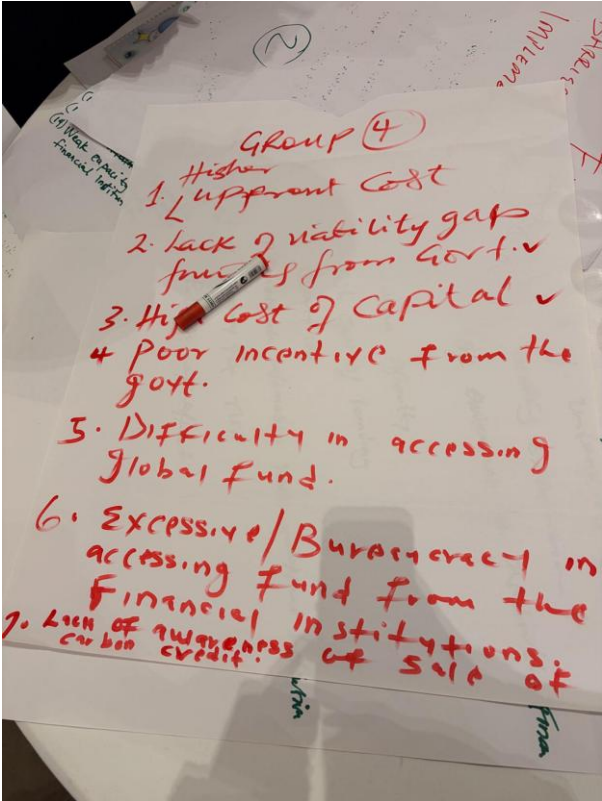 2
SHARIS
IMPLEME
(14) Weak capacity
financial Institu
GROUP 4
Higher
1. Upfront Cost
2. Lack of viability gap
from Govt. ✓
3. High Cost of Capital ✓
4 Poor incentive from the
govt.
5. Difficulty in accessing
global Fund.
6. Excessive/Bureaucracy in
accessing Fund from the
Financial institutions.
7. Lack of awareness of sale of
carbon credit.